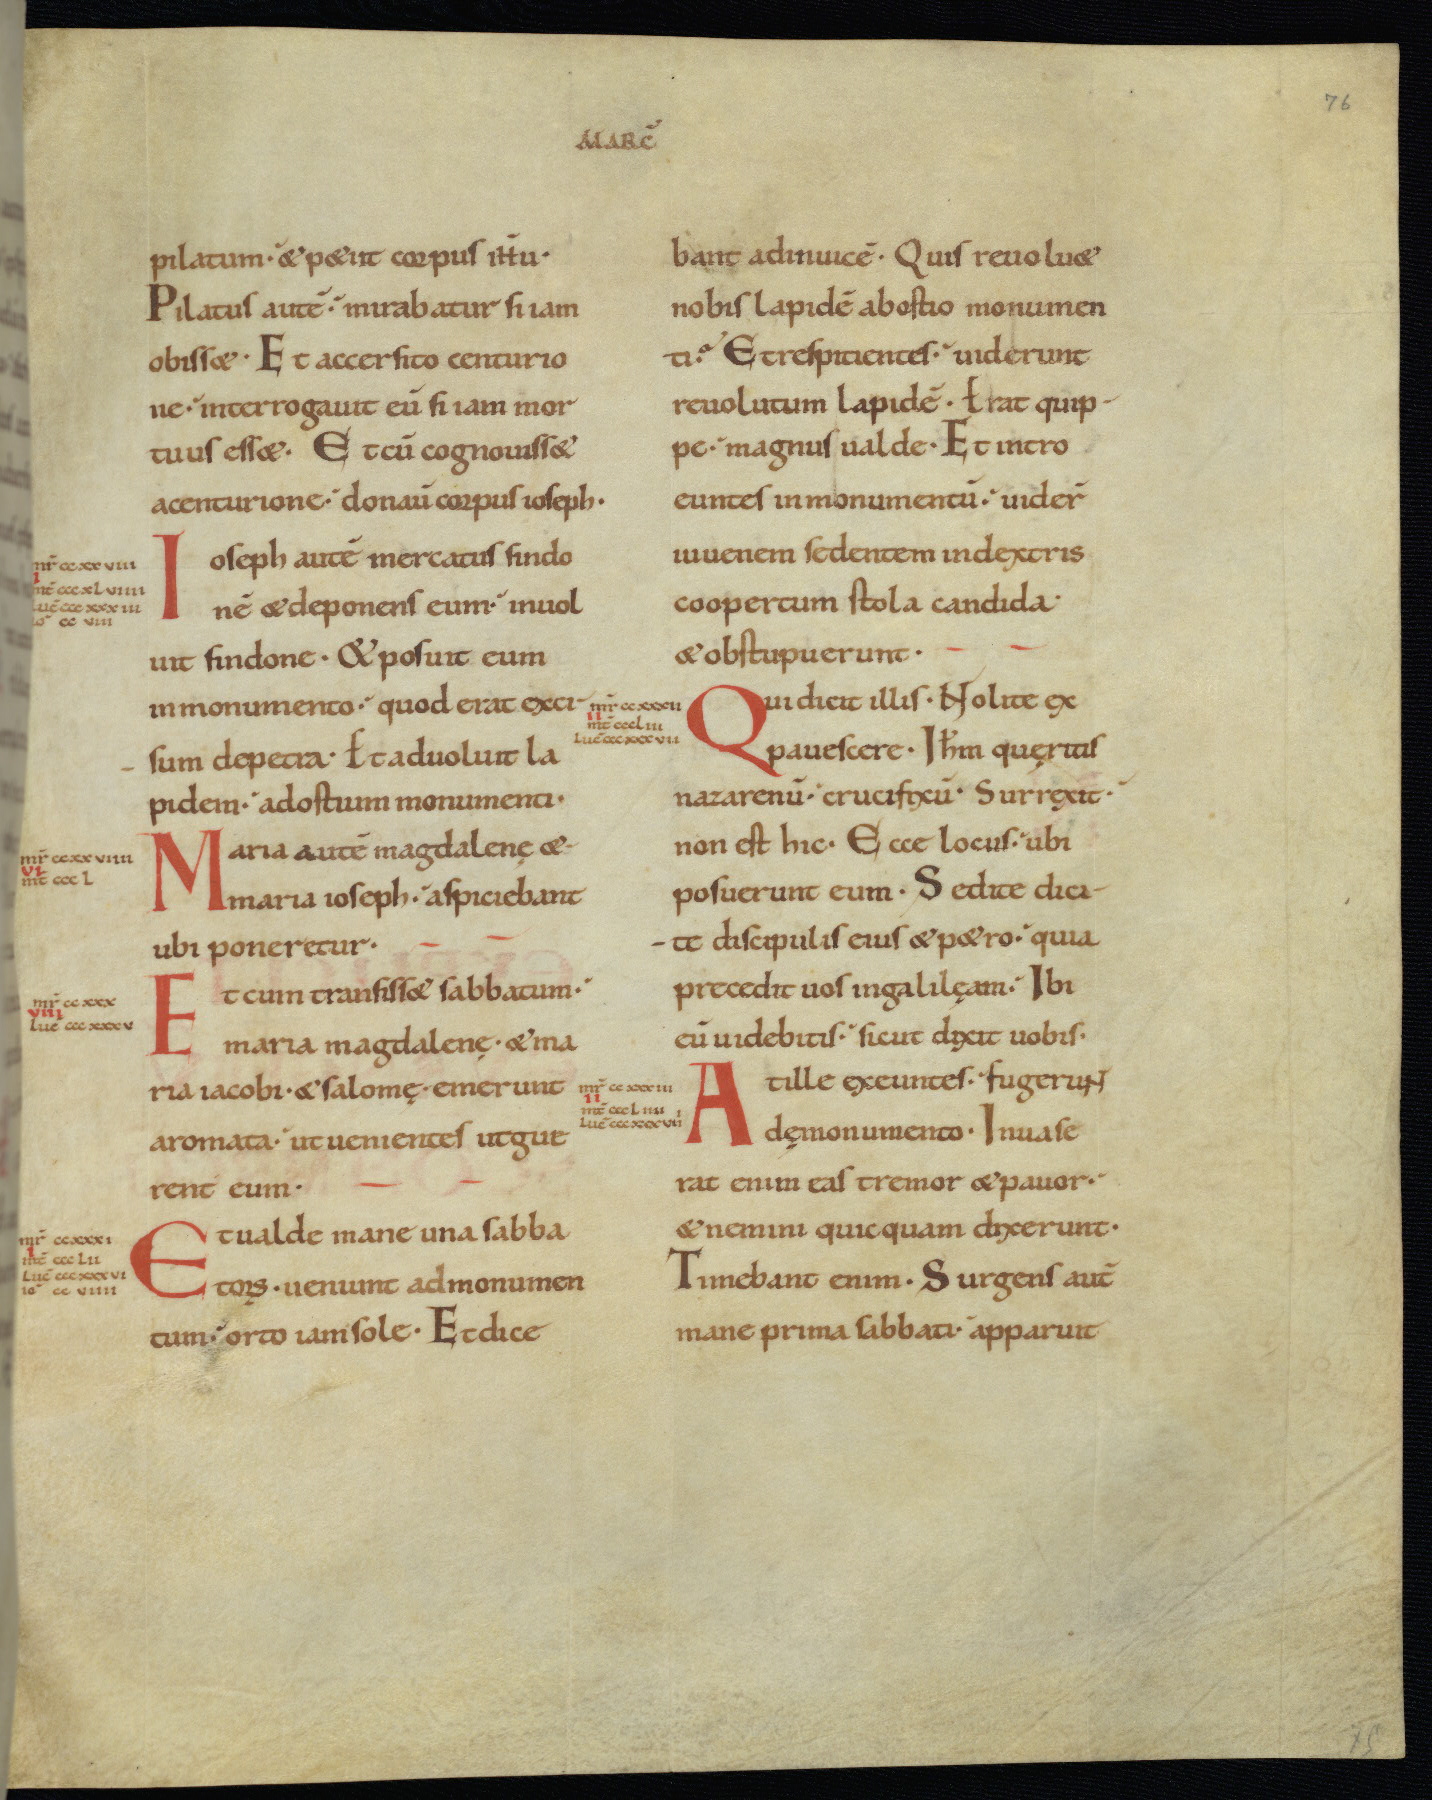 76
MARC̄
pilatum· &p&iit corpus ih̄u·
Pilatus autē· mirabatur si iam
obiss&· Et accersito centurio
ne· interrogauit eū si iam mor
tuus ess&· Et cū cognouiss&
acenturione· donaū corpus ioseph·
mr̄ ccxxviii
i
mt̄ cccxlviiii
Luc̄ cccxxxiii
io ccviii
Ioseph autē mercatus sindo
nē &deponens eum· inuol
uit sindone· &posuit eum
inmonumento· quod erat exci-
sum depetra· Et aduoluit la
pidem· adostium monumenti·
mr̄ ccxxviiii
vi
mt̄ cccl
Maria autē magdalenę &
maria ioseph· aspiciebant
ubi poneretur·
mr̄ ccxxx
viii
Luc̄ cccxxxv
Et cum transiss& sabbatum·
maria magdalenę· &ma
ria iacobi· &salomę· emerunt
aromata· ut uenientes utgue
rent eum·
mr̄ ccxxxi
i
mt̄ ccclii
Luc̄ cccxxxvi
io ccviiii
Et ualde mane una sabba
torꝝ· ueniunt admonumen
tum· orto iam sole· Et dice
bant adinuicē· Quis reuolu&
nobis lapidē abostio monumen
ti· Et respicientes· uiderunt
reuolutum lapidē· Erat quip-
pe· magnus ualde· Et intro
euntes inmonumentū· uider̄
iuuenem sedentem indextris
coopertum stola candida·
&obstupuerunt·
mr̄ ccxxxii
ii
mt̄ cccliii
Luc̄ cccxxxvii
Qui dicit illis· Nolite ex
pauescere· Ih̄m quęritis
nazarenū· crucifixū· Surręxit·
non est hic· Ecce locus· ubi
posuerunt eum· Sed ite dici-
te discipulis eius &p&ro· quia
precedit uos ingalilęam· Ibi
eū uidebitis· sicut dixit uobis·
mr̄ ccxxxiii
ii
mt̄ cccliiii
Luc̄ cccxxxviii
At ille exeuntes· fugerunt
dęmonumento· Inuase
rat enim eas tremor &pauor·
&nemini quicquam dixerunt·
Timebant enim· Surgens autē
mane prima sabbati· apparuit
75